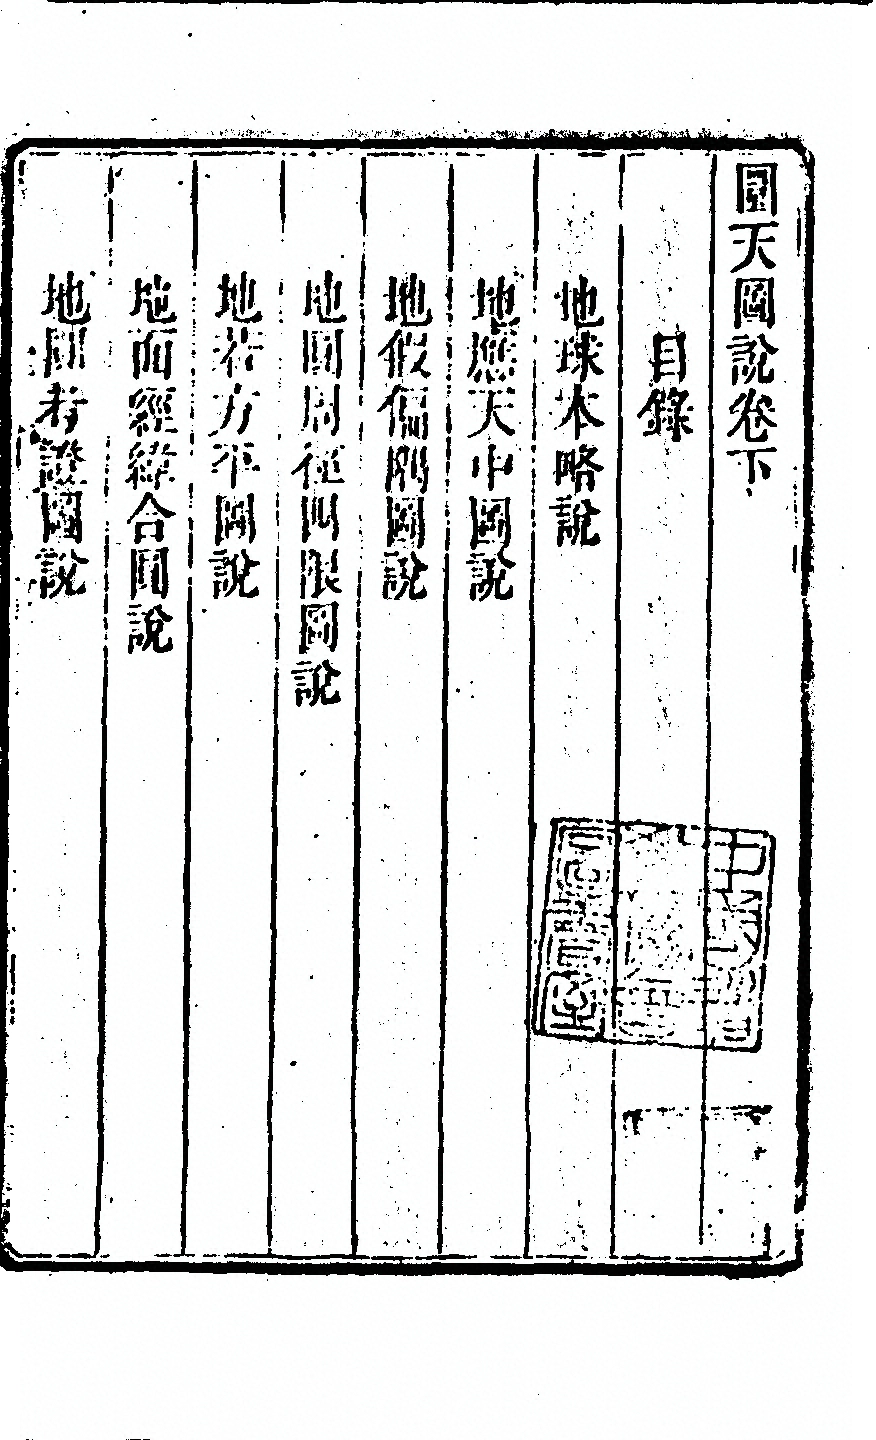 圜天圖說卷下
目錄
地球本略說
地應天中圖說
地假偏隅圖說
地圓周徑四限圖說
地若方平圖說
地面經緯合圓說
地圓考證圖說